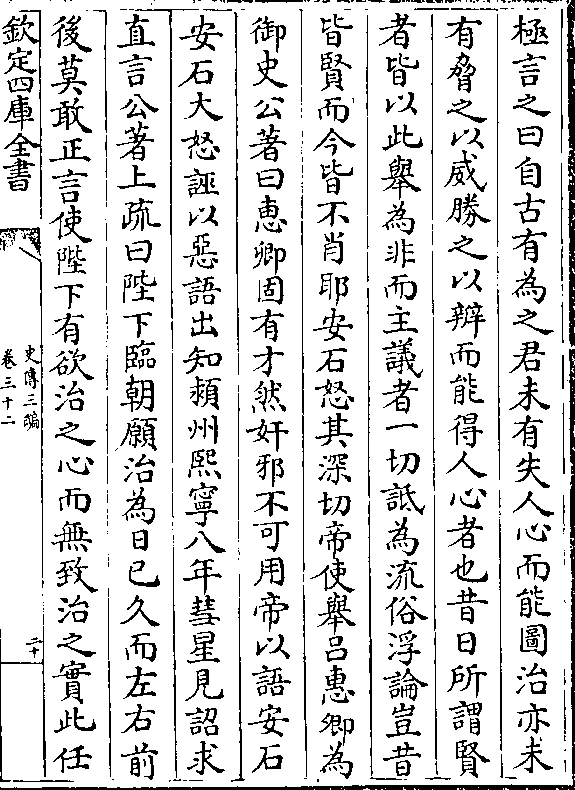 極言之曰自古有為之君未有失人心而能圖治亦未
有脅之以威勝之以辨而能得人心者也昔日所謂賢
者皆以此舉為非而主議者一切詆為流俗浮論豈昔
皆賢而今皆不肖耶安石怒其深切帝使舉吕惠卿為
御史公著曰惠卿固有才然奸邪不可用帝以語安石
安石大怒誣以惡語出知頴州熙寧八年彗星見詔求
直言公著上疏曰陛下臨朝願治為日已久而左右前
後莫敢正言使陛下有欲治之心而無致治之實此任
欽定四庫全書
史傳三編
卷三十二
二十